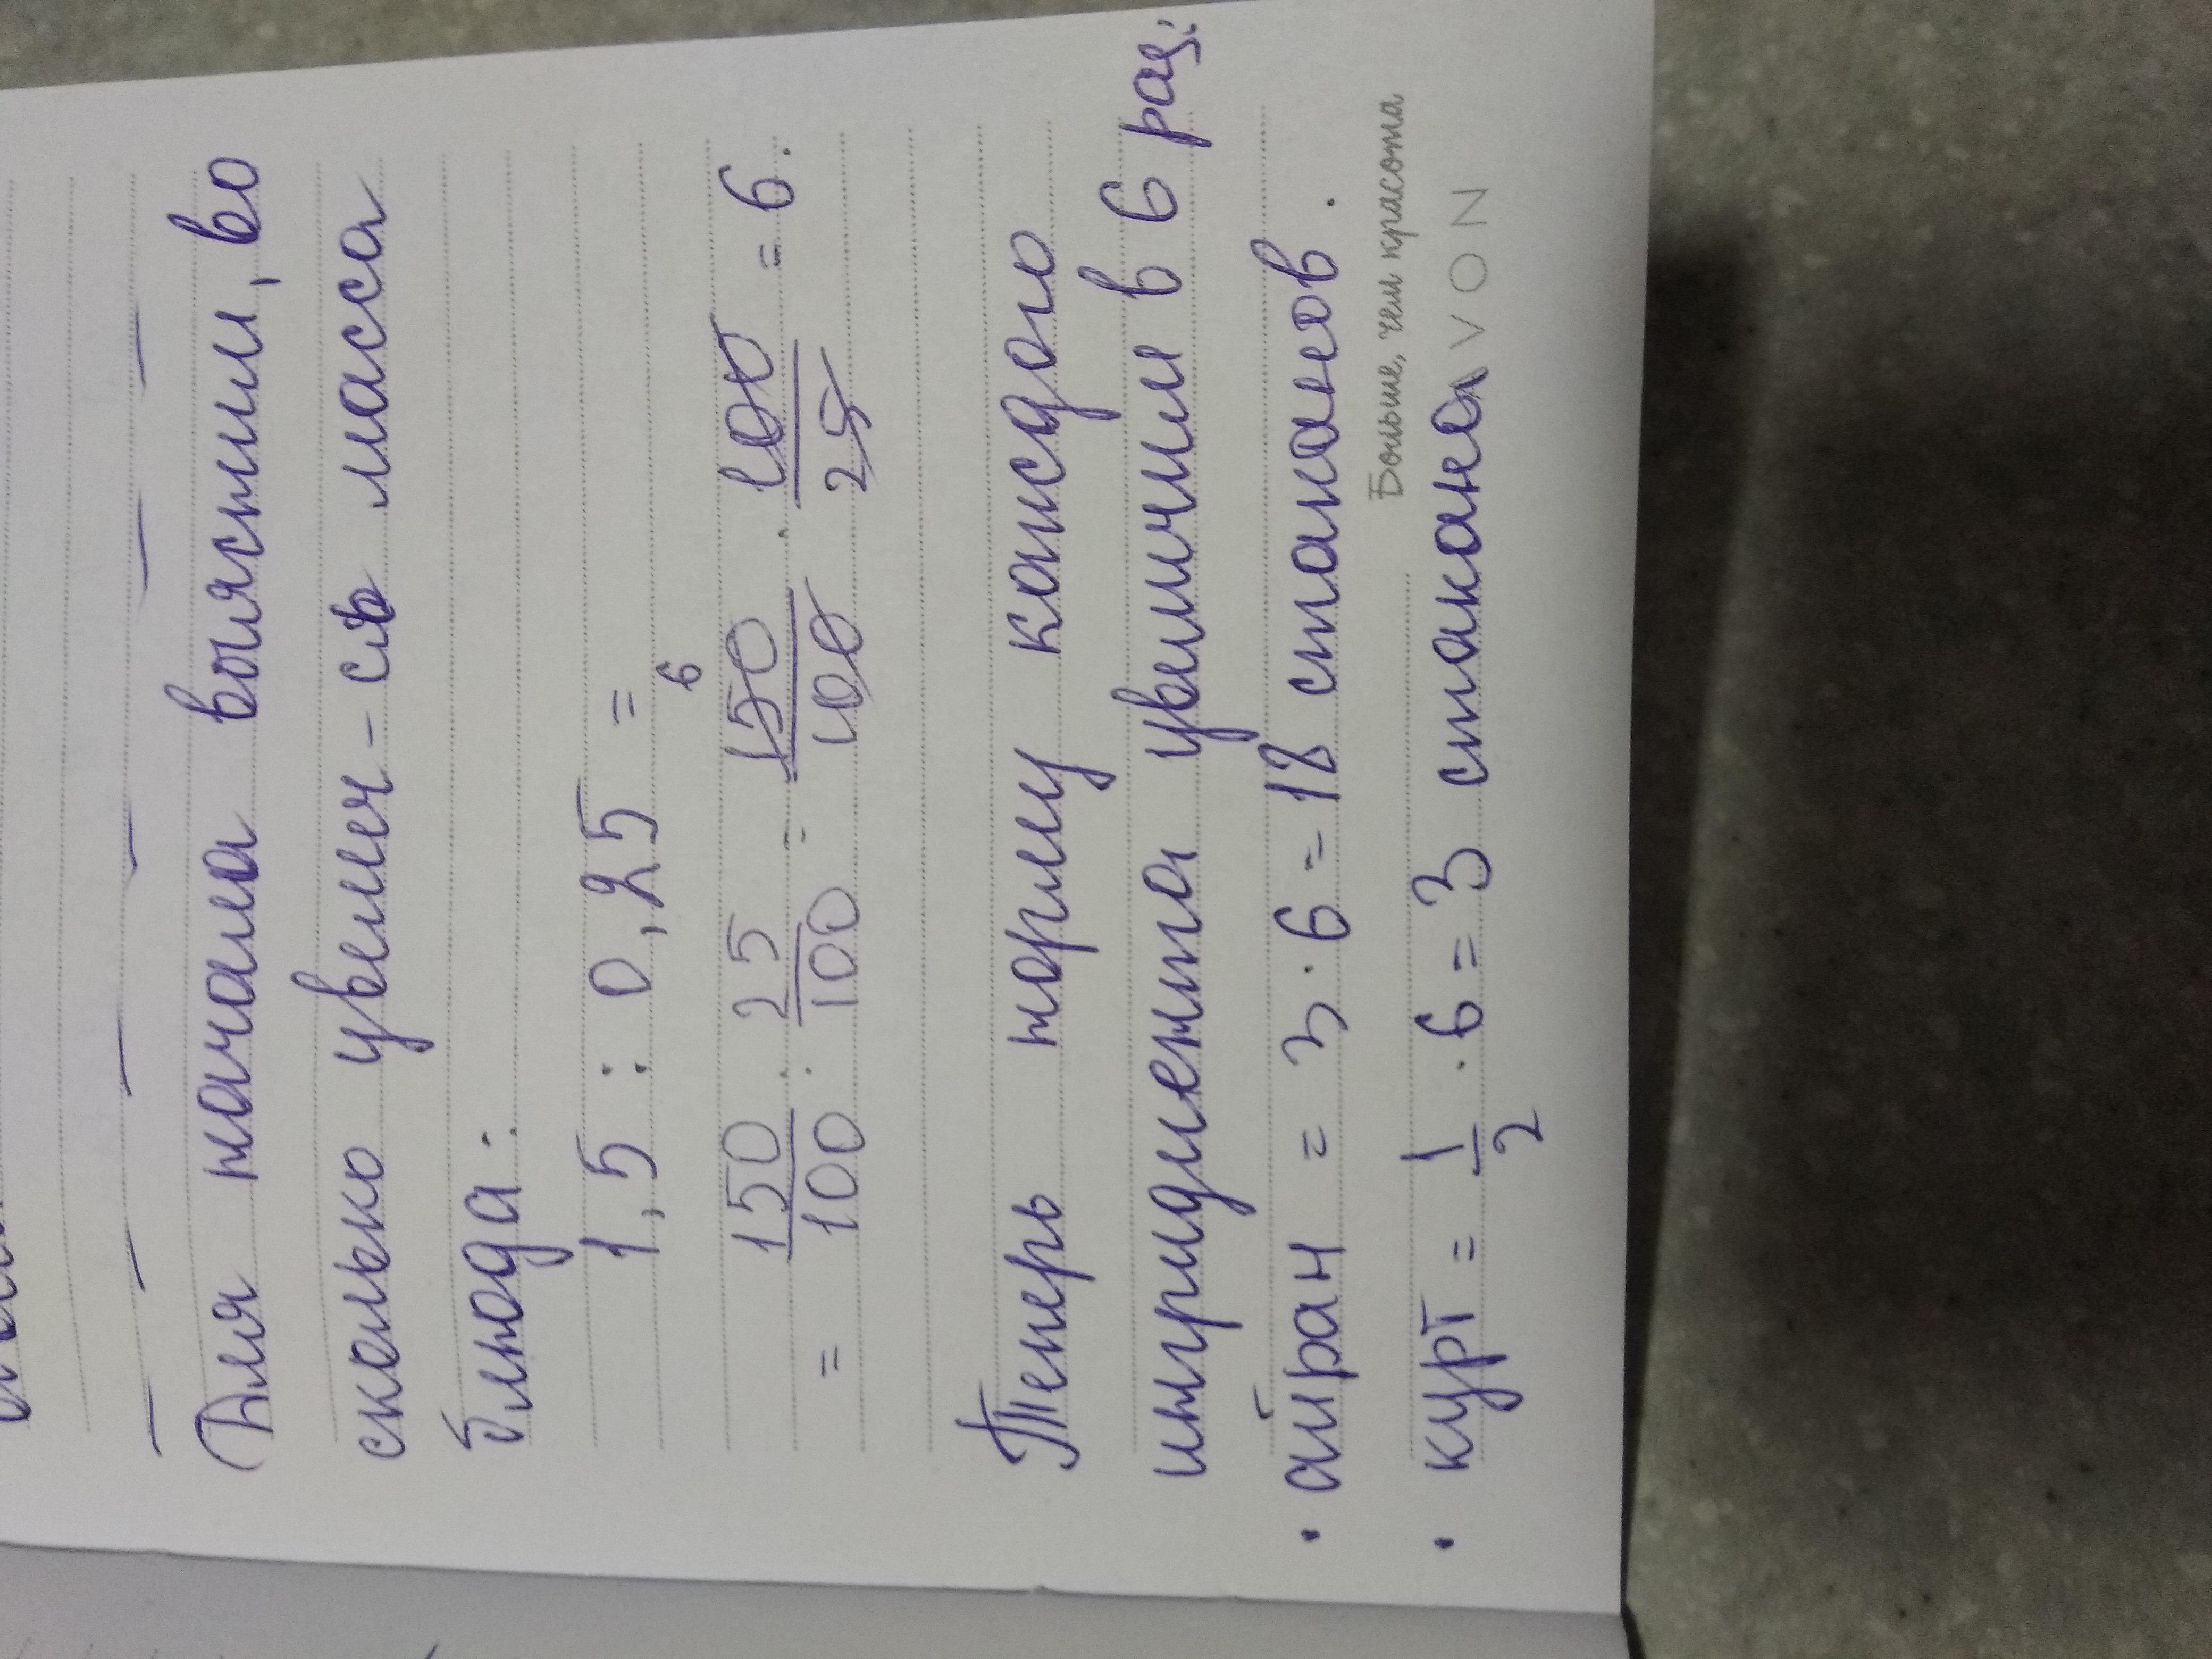 Для начала выясним, во
сколько увелич-сь масса
блюда:
1,5 : 0,25 =
6
= 150/100 : 25/100 = 150/100 · 100/25 = 6.
Теперь норму каждого
ингридиента увеличим в 6 раз:
• айран = 3 · 6 = 18 стаканов.
Больше, чем красота
• курт = 1/2 · 6 = 3 стакана
AVON